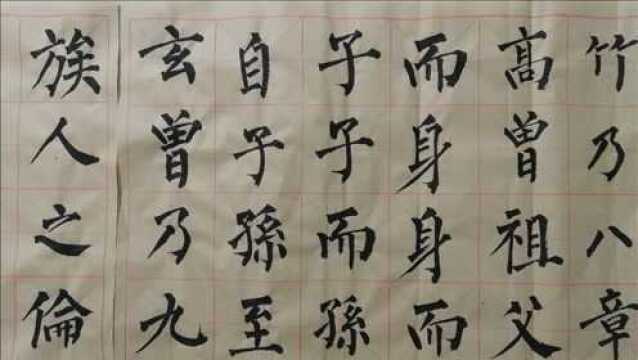 竹乃八章
高曾祖父
而身身而
子子而孫
自子孫至
玄曾乃九
族人之倫